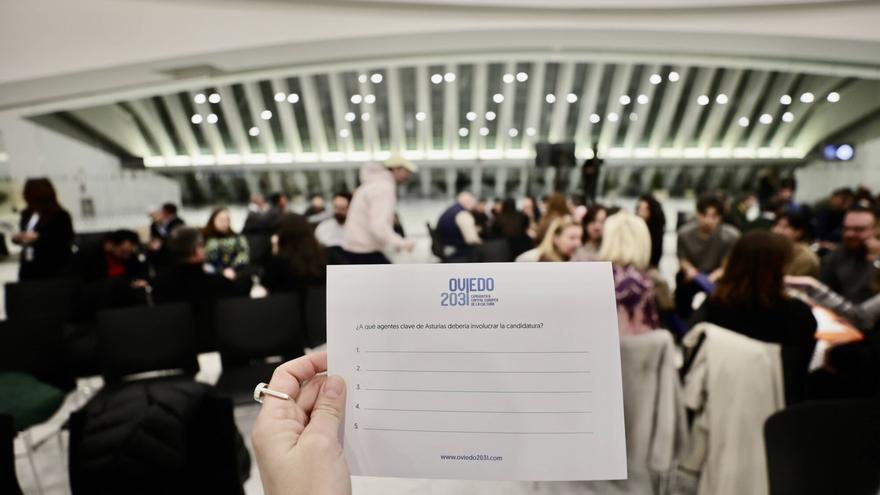 OVIEDO
2031
CANDIDATA A
CAPITAL EUROPEA
DE LA CULTURA
¿A qué agentes clave de Asturias debería involucrar la candidatura?
1.
2.
3.
4.
5.
www.oviedo2031.com